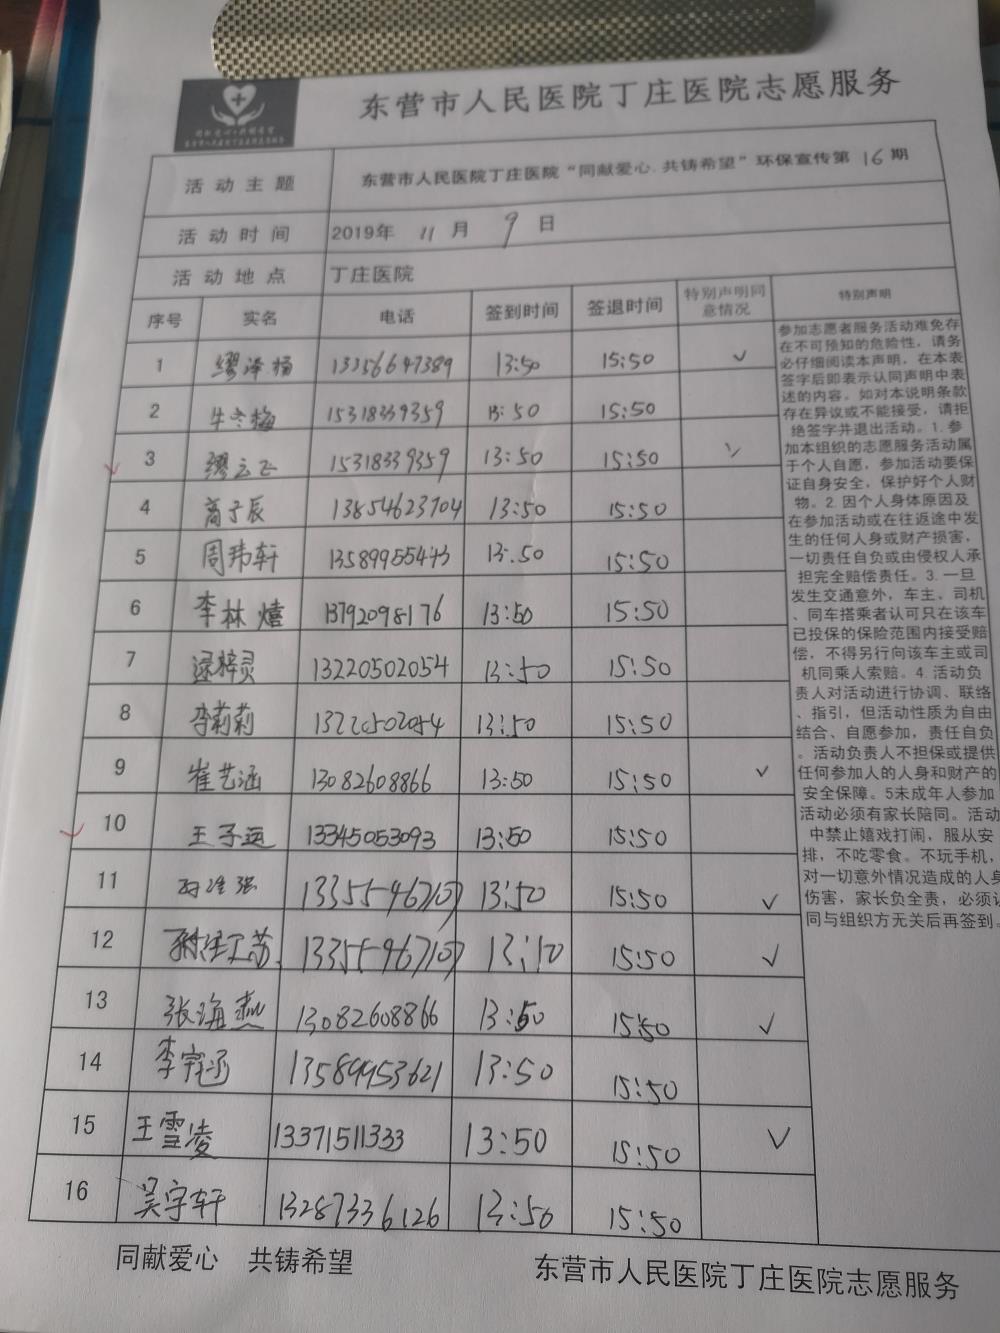 东营市人民医院丁庄医院志愿服务
活动主题 东营市人民医院丁庄医院“同献爱心.共铸希望”环保宣传第16期
活动时间 2019年 11 月 9 日
活动地点 丁庄医院
序号 实名 电话 签到时间 签退时间 特别声明同意情况 特别声明
1 缪泽杨 13356647389 13:50 15:50 ✓
2 牛冬梅 15318339359 13:50 15:50
3 缪云飞 15318339359 13:50 15:50 ✓
4 商子辰 13854623704 13:50 15:50
5 周玮轩 13589955443 13:50 15:50
6 李林熺 13792098176 13:50 15:50
7 梓灵 13220502054 13:50 15:50
8 李莉莉 13220502054 13:50 15:50
9 崔艺涵 13082608866 13:50 15:50 ✓
10 王子运 13345053093 13:50 15:50
11 13:50 15:50 ✓
12 13:50 15:50 ✓
13 张海燕 13082608866 13:50 15:50 ✓
14 李宇涵 13589953621 13:50 15:50
15 王雪凌 13371511333 13:50 15:50 ✓
16 吴宇轩 13287336126 13:50 15:50
参加志愿者服务活动难免存
在不可预知的危险性，请务
必仔细阅读本声明，在本表
签字后即表示认同声明中表
述的内容。如对本说明条款
存在异议或不能接受，请拒
绝签字并退出活动。1.参
加本组织的志愿服务活动属
于个人自愿，参加活动要保
证自身安全，保护好个人财
物。2.因个人身体原因及
在参加活动或在往返途中发
生的任何人身或财产损害，
一切责任自负或由侵权人承
担完全赔偿责任。3.一旦
发生交通意外，车主、司机
、同车搭乘者认可只在该车
已投保的保险范围内接受赔
偿，不得另行向该车主或司
机同乘人索赔。4.活动负
责人对活动进行协调、联络
、指引，但活动性质为自由
结合、自愿参加，责任自负
。活动负责人不担保或提供
任何参加人的人身和财产的
安全保障。5未成年人参加
活动必须有家长陪同。活动
中禁止嬉戏打闹，服从安
排，不吃零食。不玩手机，
对一切意外情况造成的人身
伤害，家长负全责，必须认
同与组织方无关后再签到。
同献爱心 共铸希望 东营市人民医院丁庄医院志愿服务